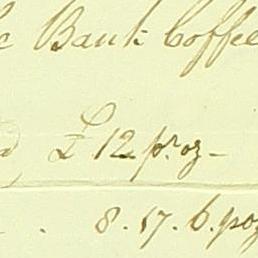 Bank Coffee
£ 12 pr. oz -
8. 17. 6. poz